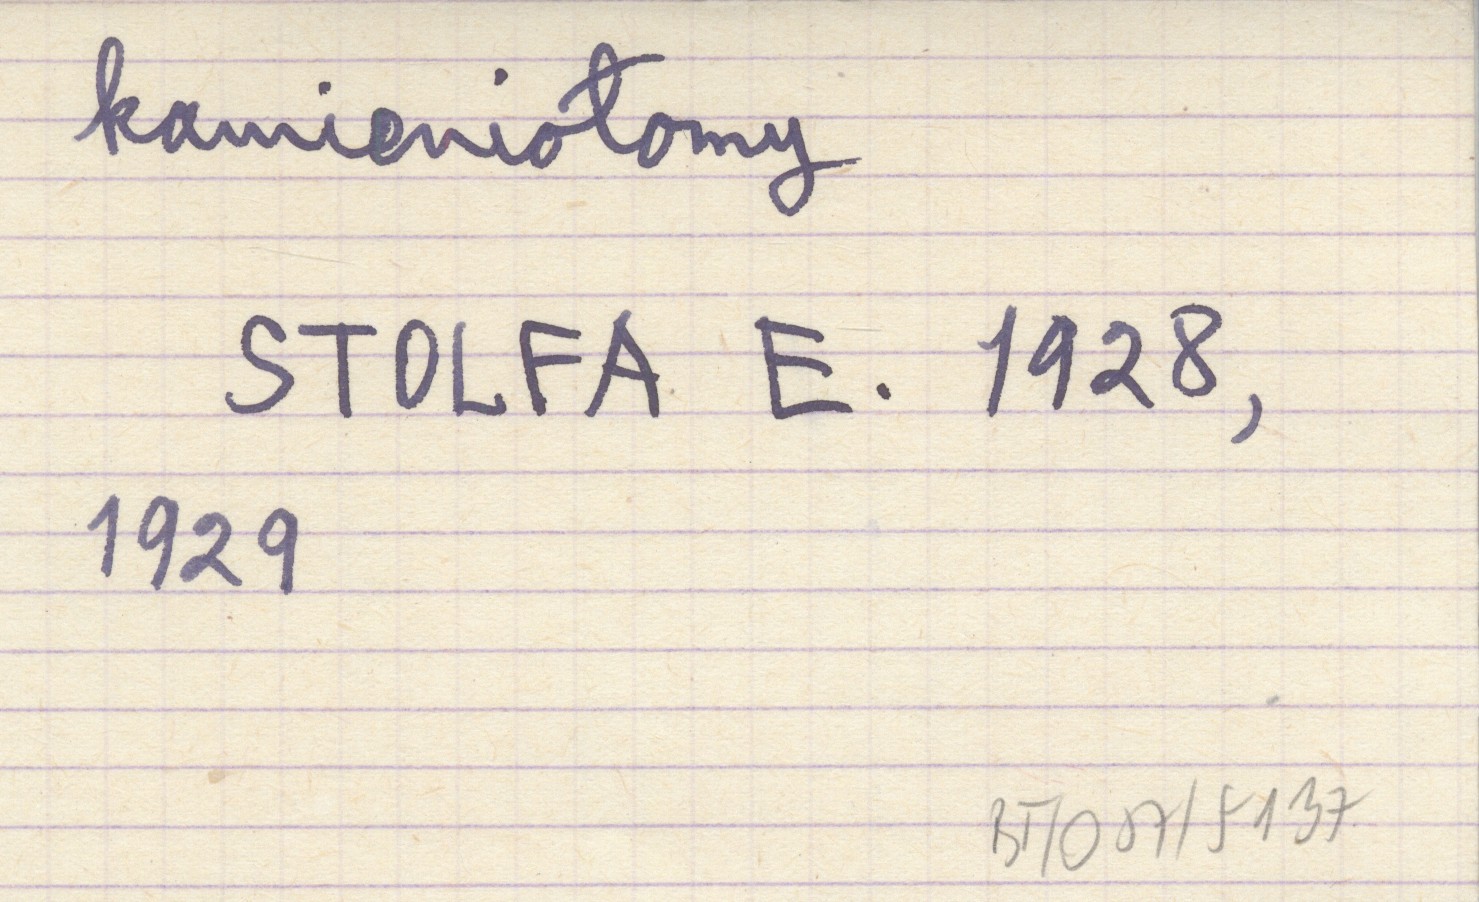 kamieniołomy
STOLFA E. 1928,
1929
BT/007/5137